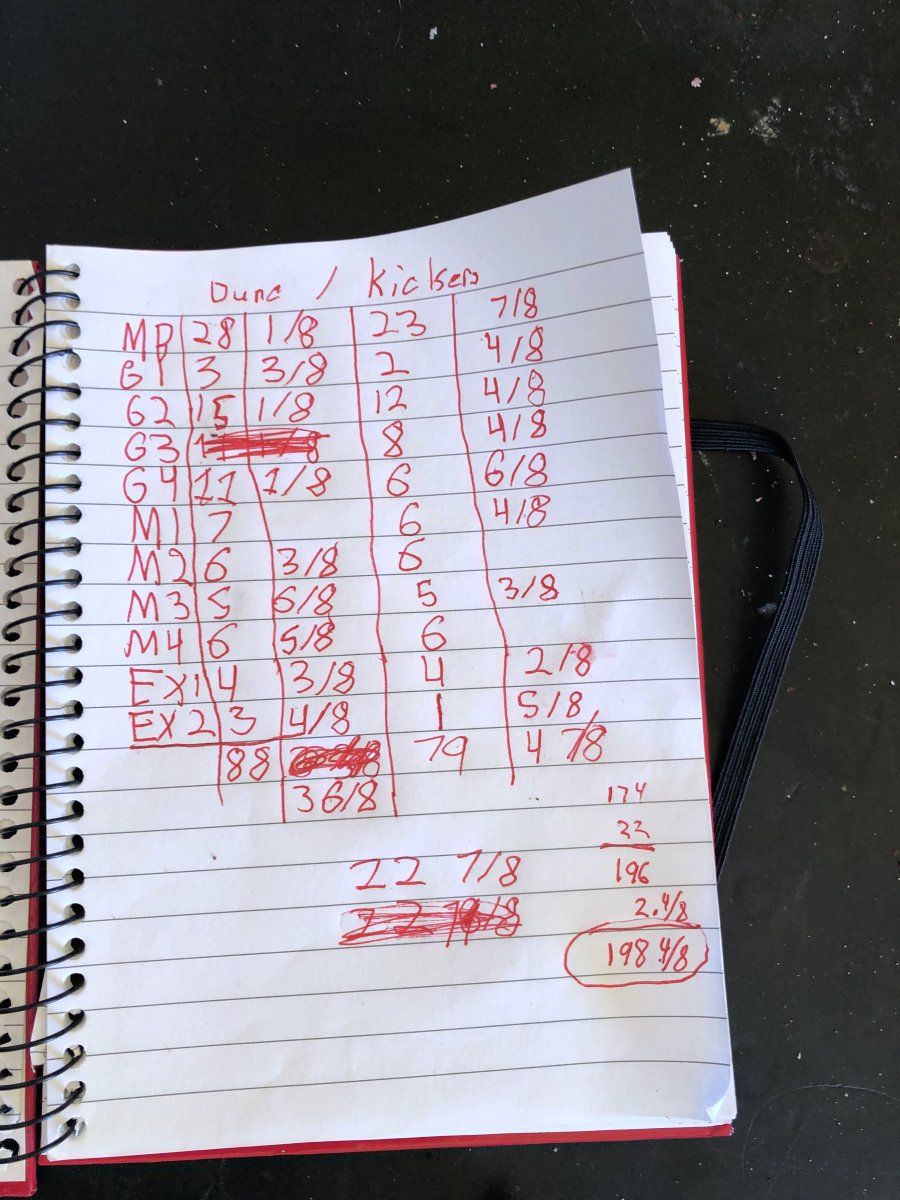 Dune / Kickers
MP 28 1/8 23 7/8
G1 3 3/8 2 4/8
G2 15 1/8 12 4/8
G3 8 4/8
G4 11 1/8 6 6/8
M1 7 6 4/8
M2 6 3/8 6
M3 5 6/8 5 3/8
M4 6 5/8 6
EX1 4 3/8 4 2/8
EX2 3 4/8 1 5/8
88 79 4 7/8
36/8
174
22
22 7/8
196
2.4/8
198 4/8